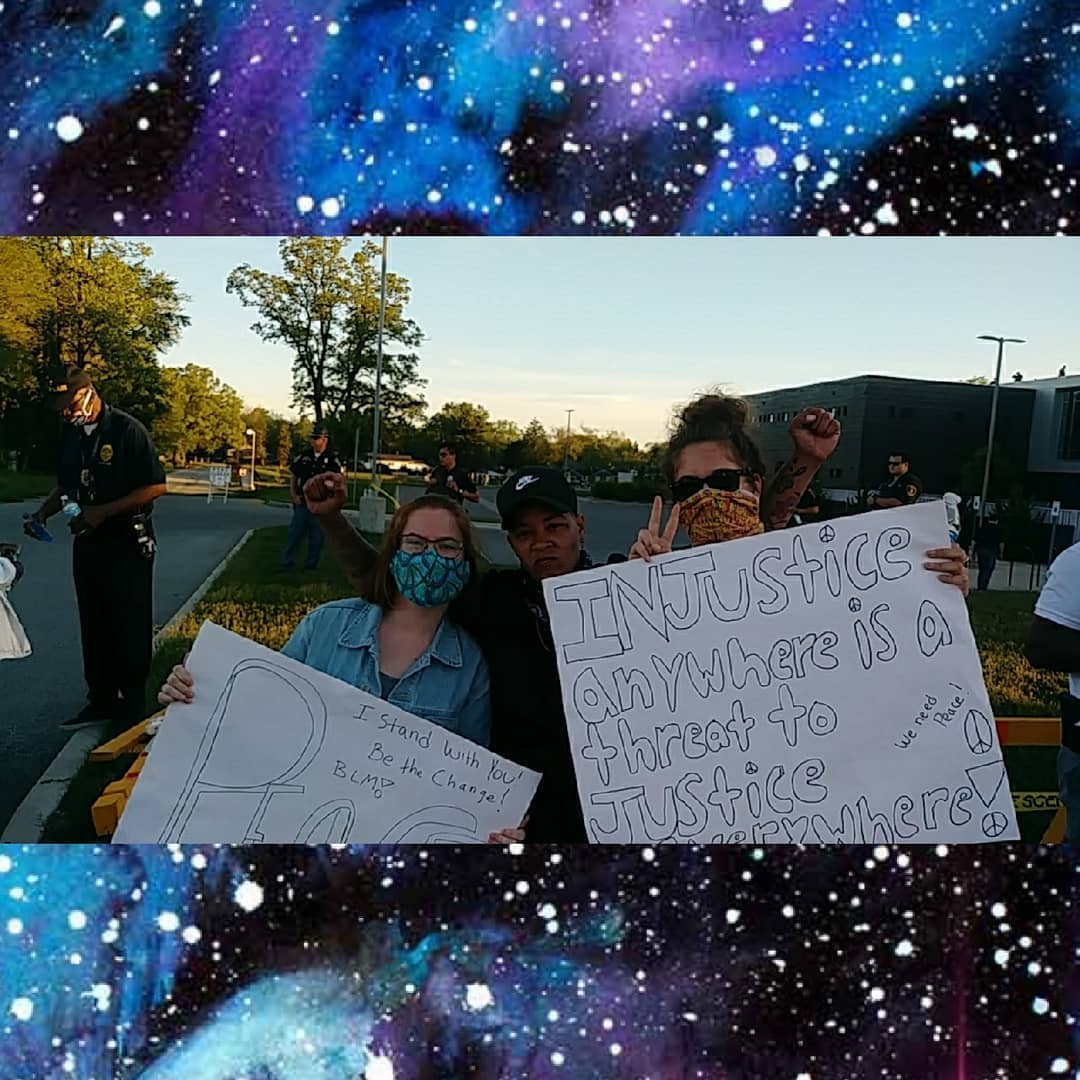 I Stand with You!
Be the Change!
BLM!
INJUStice
anywhere is a
threat to
JUStice
everywhere!
We need
Peace!